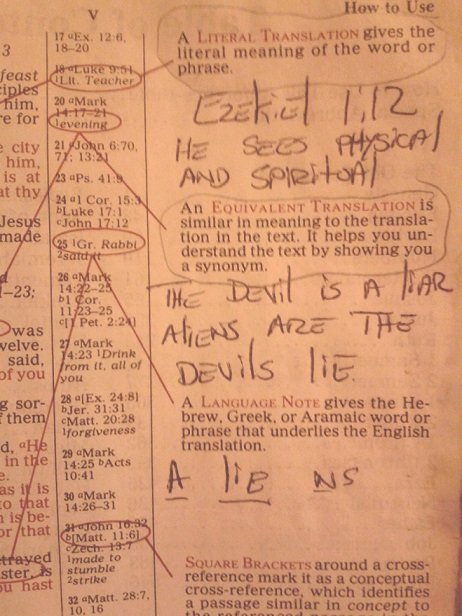 V
How to Use
3
feast
ciples
him,
re for
e city
him,
is at
at thy
Jesus
made
–23;
was
welve.
said,
of you
g sor-
f them
d, ᵃHe
in the
e.
as it is
to that
n is be-
or that
trayed
ster, is
ou hast
17 ᵃEx. 12:6,
18–20
18 ᵃLuke 9:51
¹Lit. Teacher
20 ᵃMark
14:17–21
¹evening
21 ᵃJohn 6:70,
71; 13:21
23 ᵃPs. 41:9
24 ᵃ1 Cor. 15:3
ᵇLuke 17:1
ᶜJohn 17:12
25 ¹Gr. Rabbi
²said it
26 ᵃMark
14:22–25
ᵇ1 Cor.
11:23–25
ᶜ[1 Pet. 2:24]
27 ᵃMark
14:23 ¹Drink
from it, all of
you
28 ᵃ[Ex. 24:8]
ᵇJer. 31:31
ᶜMatt. 20:28
¹forgiveness
29 ᵃMark
14:25 ᵇActs
10:41
30 ᵃMark
14:26–31
31 ᵃJohn 16:32
ᵇ[Matt. 11:6]
ᶜZech. 13:7
¹made to
stumble
²strike
32 ᵃMatt. 28:7,
10, 16
A LITERAL TRANSLATION gives the
literal meaning of the word or
phrase.
EZEKIEL 1:12
HE SEES PHYSICAL
AND SPIRITUAL
An EQUIVALENT TRANSLATION is
similar in meaning to the transla-
tion in the text. It helps you un-
derstand the text by showing you
a synonym.
THE DEVIL IS A LIAR
ALIENS ARE THE
DEVILS LIE
A LANGUAGE NOTE gives the He-
brew, Greek, or Aramaic word or
phrase that underlies the English
translation.
A LIE NS
SQUARE BRACKETS around a cross-
reference mark it as a conceptual
cross-reference, which identifies
a passage similar in concept to